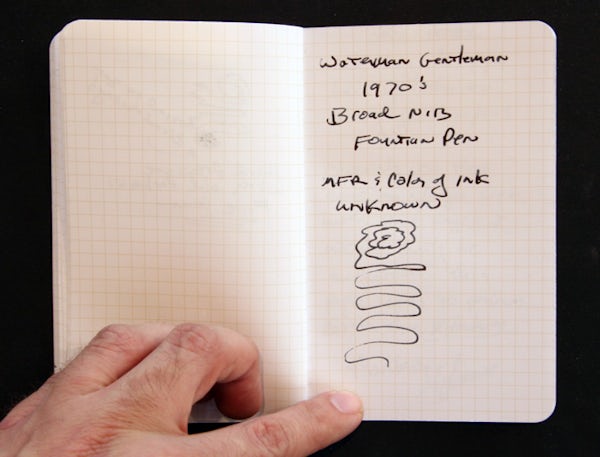 Waterman Gentleman
1970's
Broad Nib
Fountian Pen
MFR & Color of ink
unknown